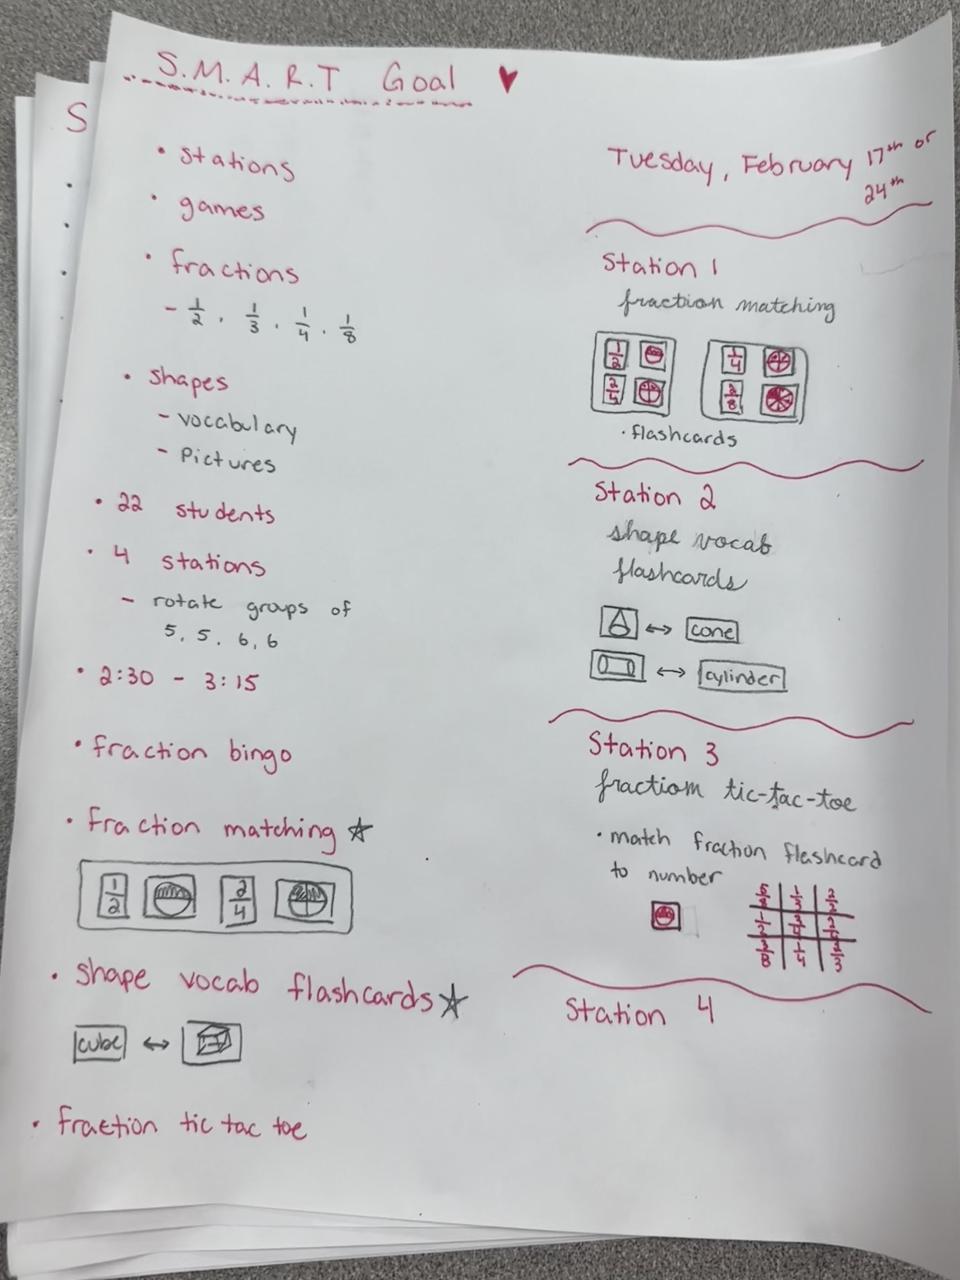 S.M.A.R.T Goal
S
• stations
• games
• fractions
- 1/2, 1/3, 1/4, 1/8
• shapes
- vocabulary
- Pictures
• 22 students
• 4 stations
- rotate groups of
5, 5, 6, 6
• 2:30 - 3:15
• fraction bingo
• fraction matching ☆
1/2 2/4
• shape vocab flashcards ☆
cube ↔
• fraction tic tac toe
Tuesday, February 17th or
24th
Station 1
fraction matching
1/2 1/4
2/4 2/8
• flashcards
Station 2
shape vocab
flashcards
↔ cone
↔ cylinder
Station 3
fraction tic-tac-toe
• match fraction flashcard
to number
1/3 2/2
1/2
3/8 1/4 2/3
Station 4